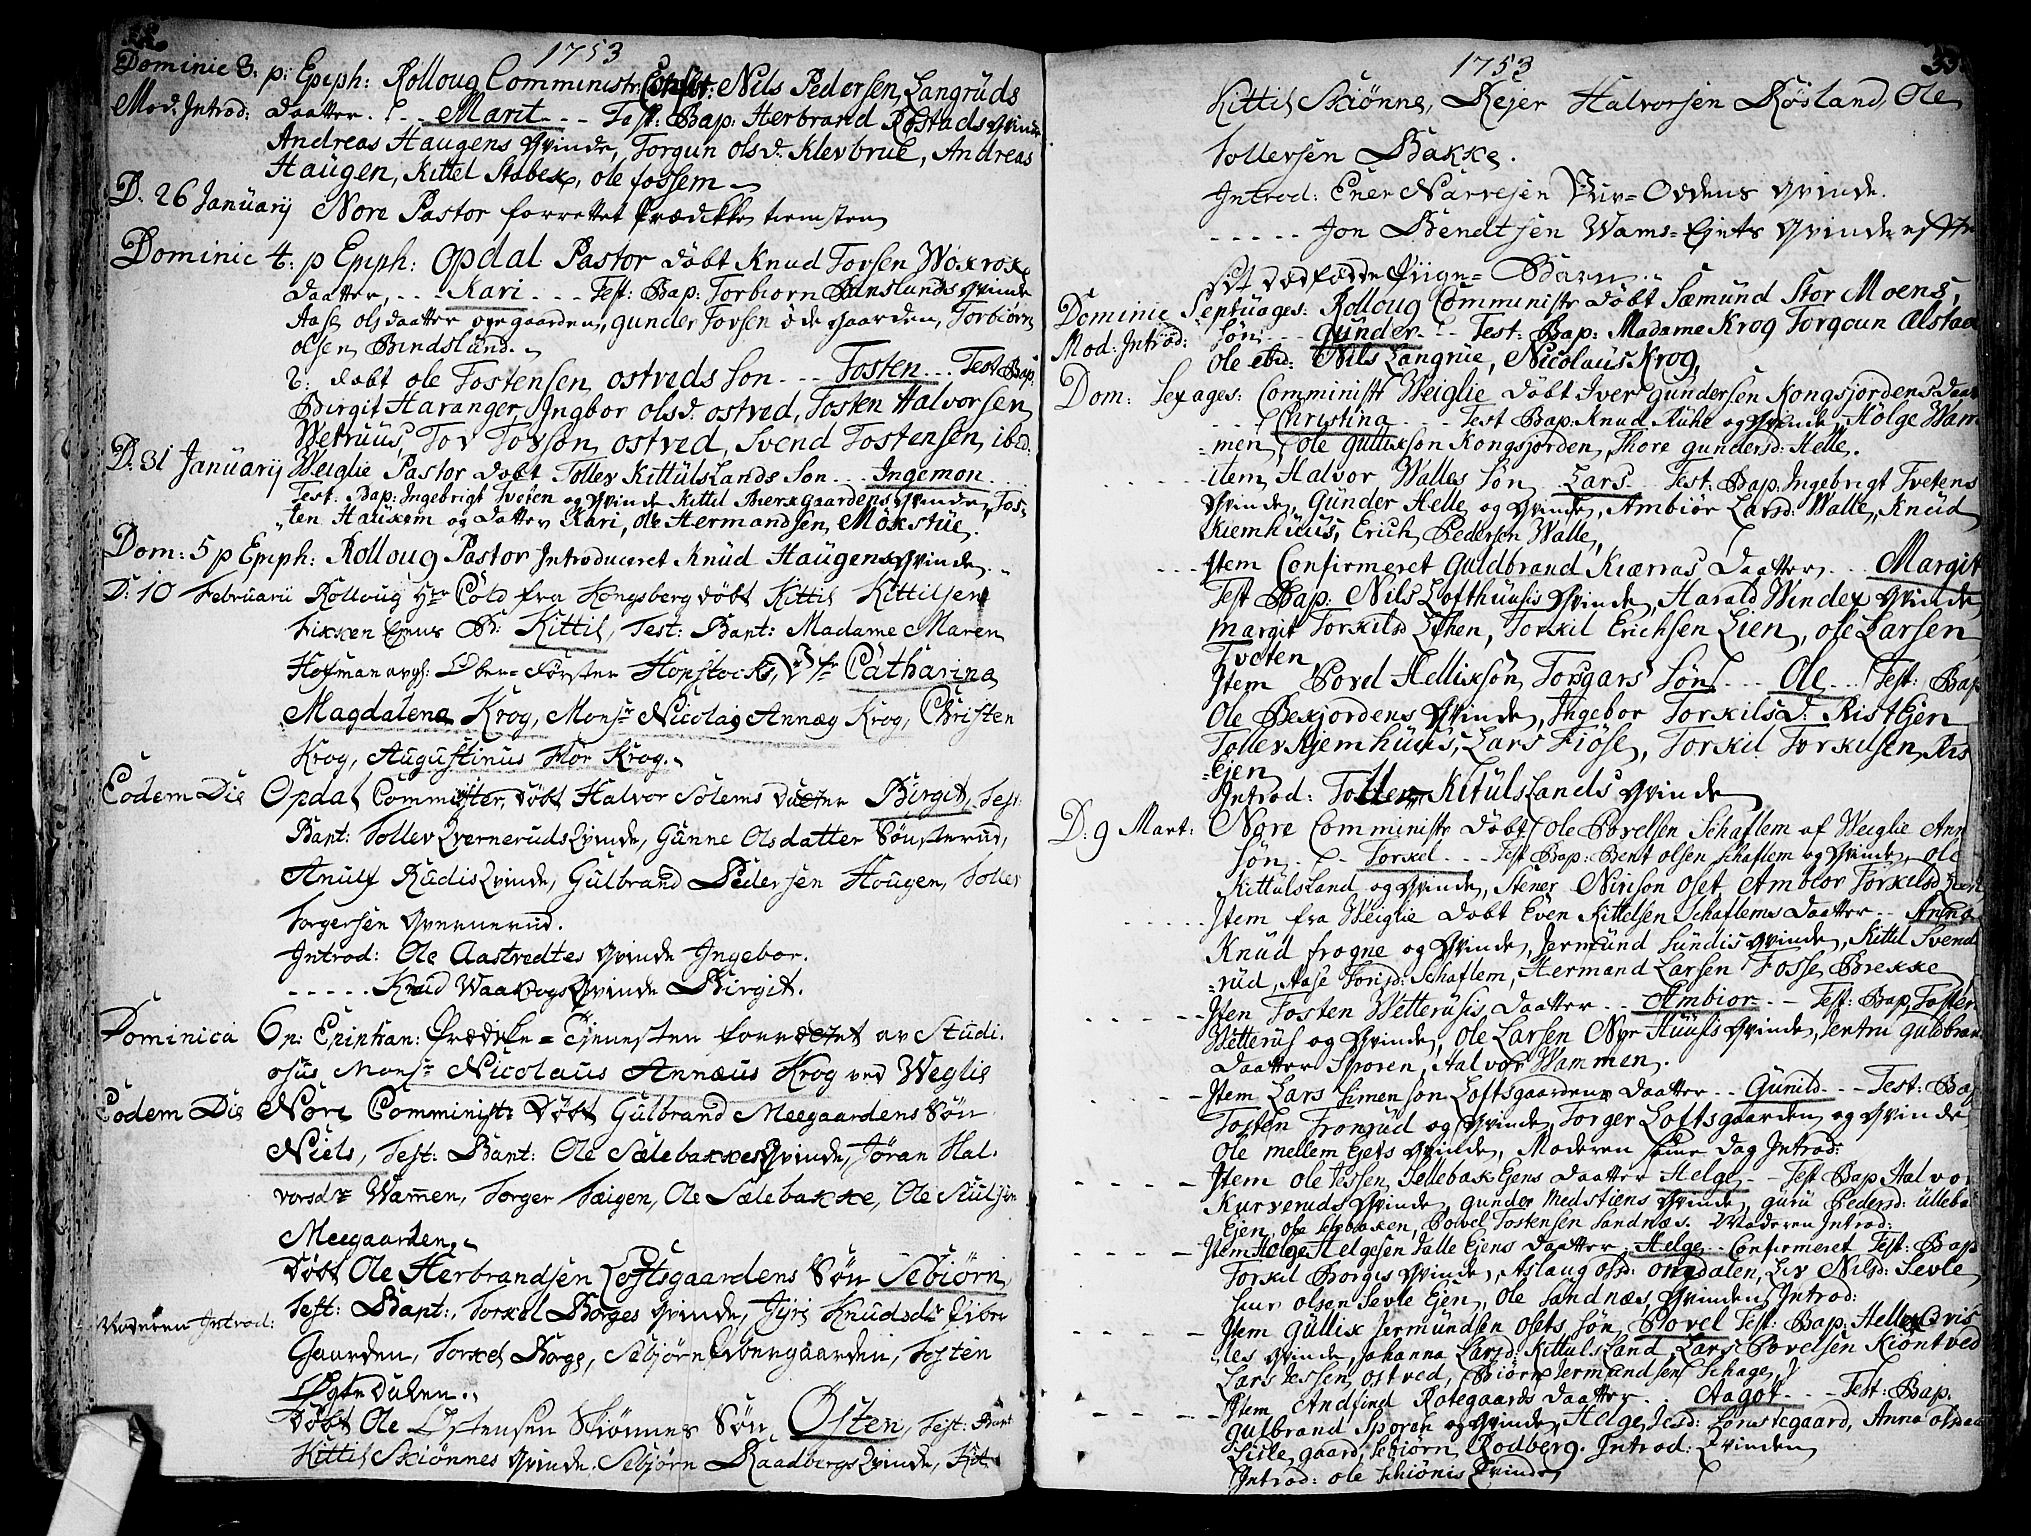 22.
1753
Dominic 3. p: Epiph: Rolloug Comministr Conf: Nils Pedersen Langruds
Mod. Introd: daatter. - - Marit - - - Test: Bap: Herbrand Rostads Qvinde
Andreas Haugens Qvinde, Torgun olsd. Klevbrue, Andreas
Haugen, Kittel Stabek, ole fossem
D. 26 Januarij Nore Pastor forrettet Prædikke tienisten
Dominic 4: p Epiph: Opdal Pastor döbt Knud Torsen Woxrox
daatter, - - - Kari - - - Test: Bap: Torbiorn Binslunds Qvinde
Aase olsdaatter øegaarden, gunder Torsen ödegaarden, Torbiörn
olsen Bindslund.
2: döbt ole Tostensen ostveds son - - - Tosten - - - Test Bap.
Birgit Haranger, Ingbor olsd. ostved, Tosten Halvorsen
Wetruus, Tov Tovson ostved, Svend Tostensen ibid.
D. 31 Januarij Weiglie Pastor dobt Tollev Kittulslands son - - Ingemon
Test. Bap: Ingebrigt Tveten og Qvinde Kittil Bierxgaardens Qvinde, Tos-
ten Hauxom og datter Kari, ole Hermandsen Mökstue.
Dom: 5 p Epiph: Rolloug Pastor Introduceret Knud Haugens Qvinde
D: 10 Februarii Rolloug Hr Cold fra Kongsberg döbt Kittil Kittilsen
B: Kittil, Test: Bapt: Madame Maren
Hofman Ober-Førster Hopstock, Jfr Catharina
Magdalena Krog, Monsr Nicolaj Annæg Krog, Christen
Krog, Augustinus Mor Krog.
Eodem Die Opdal Comminister döbt Halvor Solems daatter Birgit, Test:
Bapt: Tollev Qvernerudsqvinde, Gunne Olsdatter Sönsterud,
Anulf Rudisqvinde, Gulbrand Pedersen Hougen, Tollev
Torgersen Qvernerud.
Introd: Ole Aastvedtes Qvinde Ingebor.
- - - - - Knud Waakogsqvinde Birgit.
Dominica 6 p: Epiphan: Prædike-Tjenesten forrættet av Studi-
osus Monsr Nicolaus Annæus Krog ved Weglie
Eodem Die Nore Comministr Döbt Gulbrand Meegaardens Sön
Niels, Test: Bapt: Ole Sælebakkes Qvinde, Jöran Hal-
vorsdr Wammen, Torger Tæigen, Ole Sælebakke, Ole
Meegaarden.
Döbt Ole Herbrandsen Loftsgaardens Sön Sebiörn,
Moderen Introd: Test: Bapt:, Torkel Borges Qvinde, Jyri Knudsdr
Gaarden, Torkel Borge, Sebjörn gaarden, Tosten
Öygtedalen.
Döbt Ole Östensen Skiönnes Sön Østen, Test: Bapt
Kittil Skiönnes Qvinde, Sebjörn Raadbergs Qvinde, Kit
33
1753
Kittil Skiönne, Rejer Halvorsen Rösland, Ole
Tollevsen Bakke.
Introd: Ener Narvesen Oddens Qvinde.
- - - - - Jon Bendtsen Wams-Ejets Qvinde efter
et dödfödde Piige-Barn.
Dominic Septuages: Rolloug Comministr döbt Sæmund Stor Moens,
Mod: Introd: sön - - Gunder - - Test: Bap: Madame Krog Torgoun Alstad
ole ibid: Nils Langrue, Nicolaus Krog,
Dom: Sexages: Comministr Weiglie döbt Iver gundersen Kongsjordens daat
- - Christina - - Test Bap: Knud Ruhe og Qvinde, Holge Wam-
-men, ole gullikson Kongsjorden, Thore gundersd: Helle.
- - - - Item Halvor Walles Sön Lars - - Test: Bap: Ingebrigt Tvetens
Qvinde, Gunder Helle og Qvinde, Ambiör Larsd: Walle, Knud
Kiemhuus, Erich Pedersen Walle,
- - - Item Confirmeret Guldbrand Kiærras daatter - - Margit
Test Bap: Nils Lofthuusis Qvinde, Harald Windex Qvinde
Margit Torkilsd Lihen, Torkil Erichsen Lien, ole Larsen
Tveten
Item Povel Hellikson Torsgars Söns - - Ole - - Test: Bap
Ole Bexjordens Qvinde, Ingebor Torkilsd: RistEjen
Tollev Kjemhuus, Lars Fiöse, Torkil Torkilsen Ris
-Ejen
Introd: Tollev Kitulslands Qvinde
D: 9 Mart: Nore Comministr döbt ole Povelsen Schaflem af Weiglie Ann
sön. - - Torkel - - Test Bap: Bent olsen Schaflem og Qvinde, ole
Kittulsland og Qvinde, Stener Nirison oset, Ambior Torkilsd
- - - - - Item fra Weiglie döbt Even Kittelsen Schaflems daatter - - Anna
Knud frogne og Qvinde, Jermund Sundis Qvinde, Kittil Svend
-rud, Aase Torisd: Schaflem, Hermand Larsen Fosse Brekke
- - - - Iten Tosten Wetterusis daatter - - Ambior - - Test: Bap Tosten
Wetterus og Qvinde, Ole Larsen Nyr Huusis Qvinde, Jertru guldbran
daatter Sporen, Halvor Wammen.
- - - - Item Lars Simenson Loftsgaardens daatter - - Gunild - - - Test: Bap
Tosten Fronsud og Qvinde, Torger Loftsgaarden og Qvinde
Ole mellem Ejets Qvinde, Moderen same Dag Introd:
- - - - Item ole Tessen Sellebak Ejens daatter - Helge - - Test Bap Halvor
Kurveruds Qvinde, gunder Medstiens Qvinde, guru Pedersd: ullebak
Ejen, ole selebaken, Povel Tostensen Sandnæs. Moderen Introd:
- - - - Item Helge Helgesen dalle Ejens daatter Helge - - Confirmeret Test: Bap
Torkil Borgis Qvinde, Aslaug olsd: ongdalen, Liv Nilsd: Sevle
olsen Sevle Ejen, ole Sandnæs, Qvinden Introd:
- - - - Item Gullix Jermundsen osets sön Povel Test: Bap: Hellex Cvis
les Qvinde, Johanna Larsd Kittulsland, Lars Povelsen Kiontved
Lars Jessen ostved, Biörn Jermundsen Schage,
- - - - Item Andfind Rotegaards daatter - - Aagot - - - Test: Bap.
gulbrand Sporen og Qvinde, Helge Jesd: Tönstegaard, Anna olsdaa
Lislegaard, Sebiörn Rodberg. Introd: Qvinden
Introd: ole Schiönis Qvinde